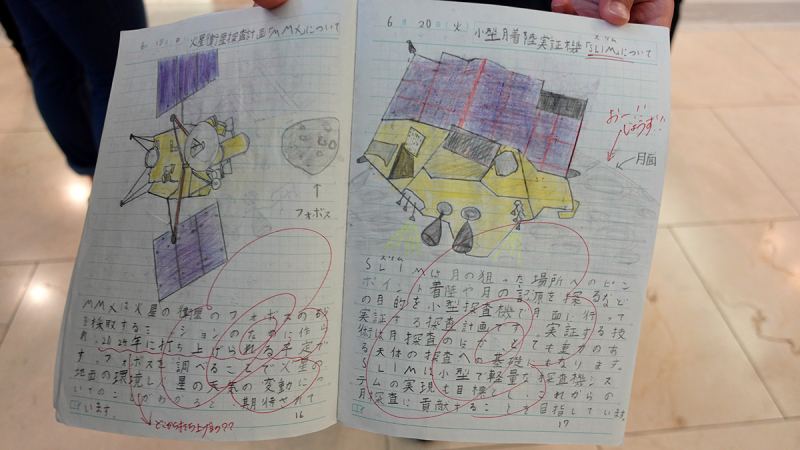 火星衛星探査計画「MMX」について
フォボス
MMXは火星の衛星のフォボスの砂
を採取するミッションのために作ら
れ、2024年に打ち上げられる予定で
す。フォボスを調べることで火星の
地面の環境し、星の天気の変動につ
いてのことがわかると、期待されて
います。
16
どこから打ち上げるの??
6月20日(火)
小型月着陸実証機「SLIM」について
スリム
おー!!
じょうず!!
月面
スリム
SLIMは月の狙った場所へのピン
ポイント着陸や月の起源を探るなど
の目的を小型探査機で月面に行って
実証する探査計画です。実証する技
術は月探査のほか、とても重力のあ
る天体の探査への基礎にもなります。
SLIMは小型で軽量な探査機シス
テムの実現も目標とし、これからの
月探査に貢献することを目指しています。
17